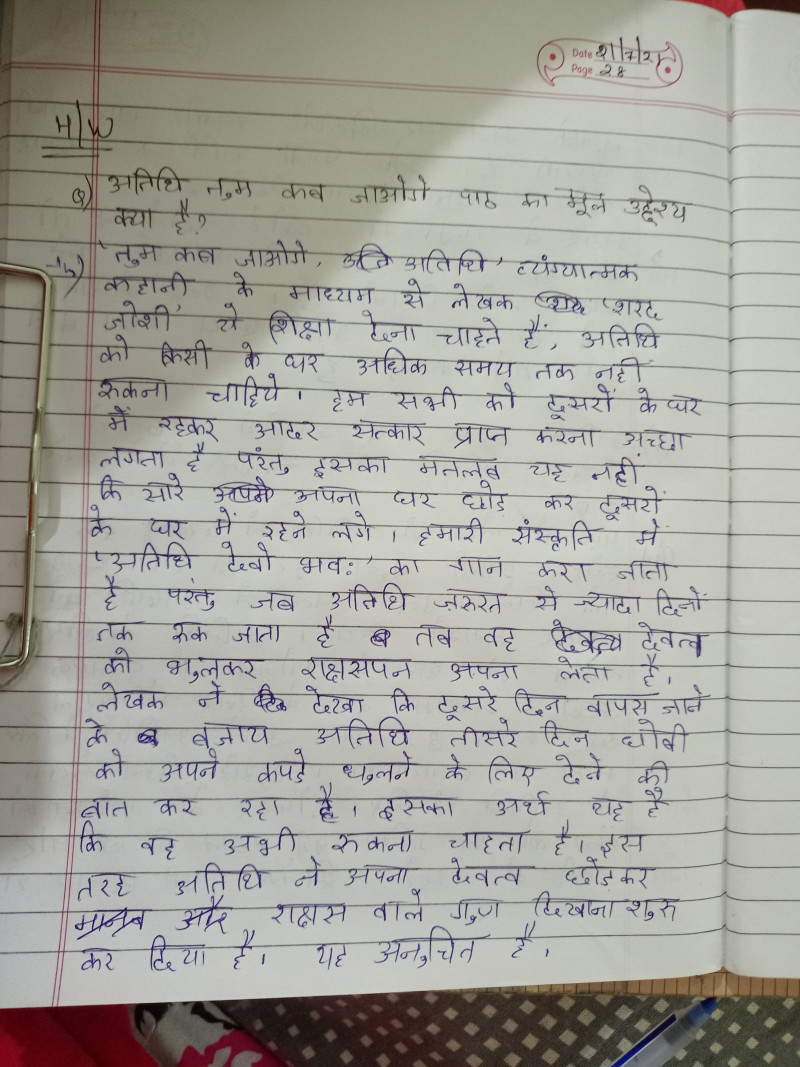 Date 21/7/21
Page 28
H/W
Q) अतिथि तुम कब जाओगे पाठ का मूल उद्देश्य
क्या है?
'तुम कब जाओगे, अतिथि' व्यंग्यात्मक
कहानी के माध्यम से लेखक 'शरद
जोशी' ये शिक्षा देना चाहते हैं, अतिथि
को किसी के घर अधिक समय तक नहीं
रुकना चाहिये। हम सभी को दूसरों के घर
में रहकर आदर सत्कार प्राप्त करना अच्छा
लगता है परंतु इसका मतलब यह नहीं
कि सारे अपना घर छोड़ कर दूसरों
के घर में रहने लगे। हमारी संस्कृति में
'अतिथि देवो भवः' का गान करा जाता
है परंतु जब अतिथि जरूरत से ज्यादा दिनों
तक रुक जाता है तब वह देवत्व
को भुलकर राक्षसपन अपना लेता है।
लेखक ने देखा कि दूसरे दिन वापस जाने
के बजाय अतिथि तीसरे दिन धोबी
को अपने कपडे धुलने के लिए देने की
बात कर रहा है। इसका अर्थ यह है
कि वह अभी रुकना चाहता है। इस
तरह अतिथि ने अपना देवत्व छोडकर
राक्षस वाले गुण दिखाना शुरु
कर दिया है। यह अनुचित है।